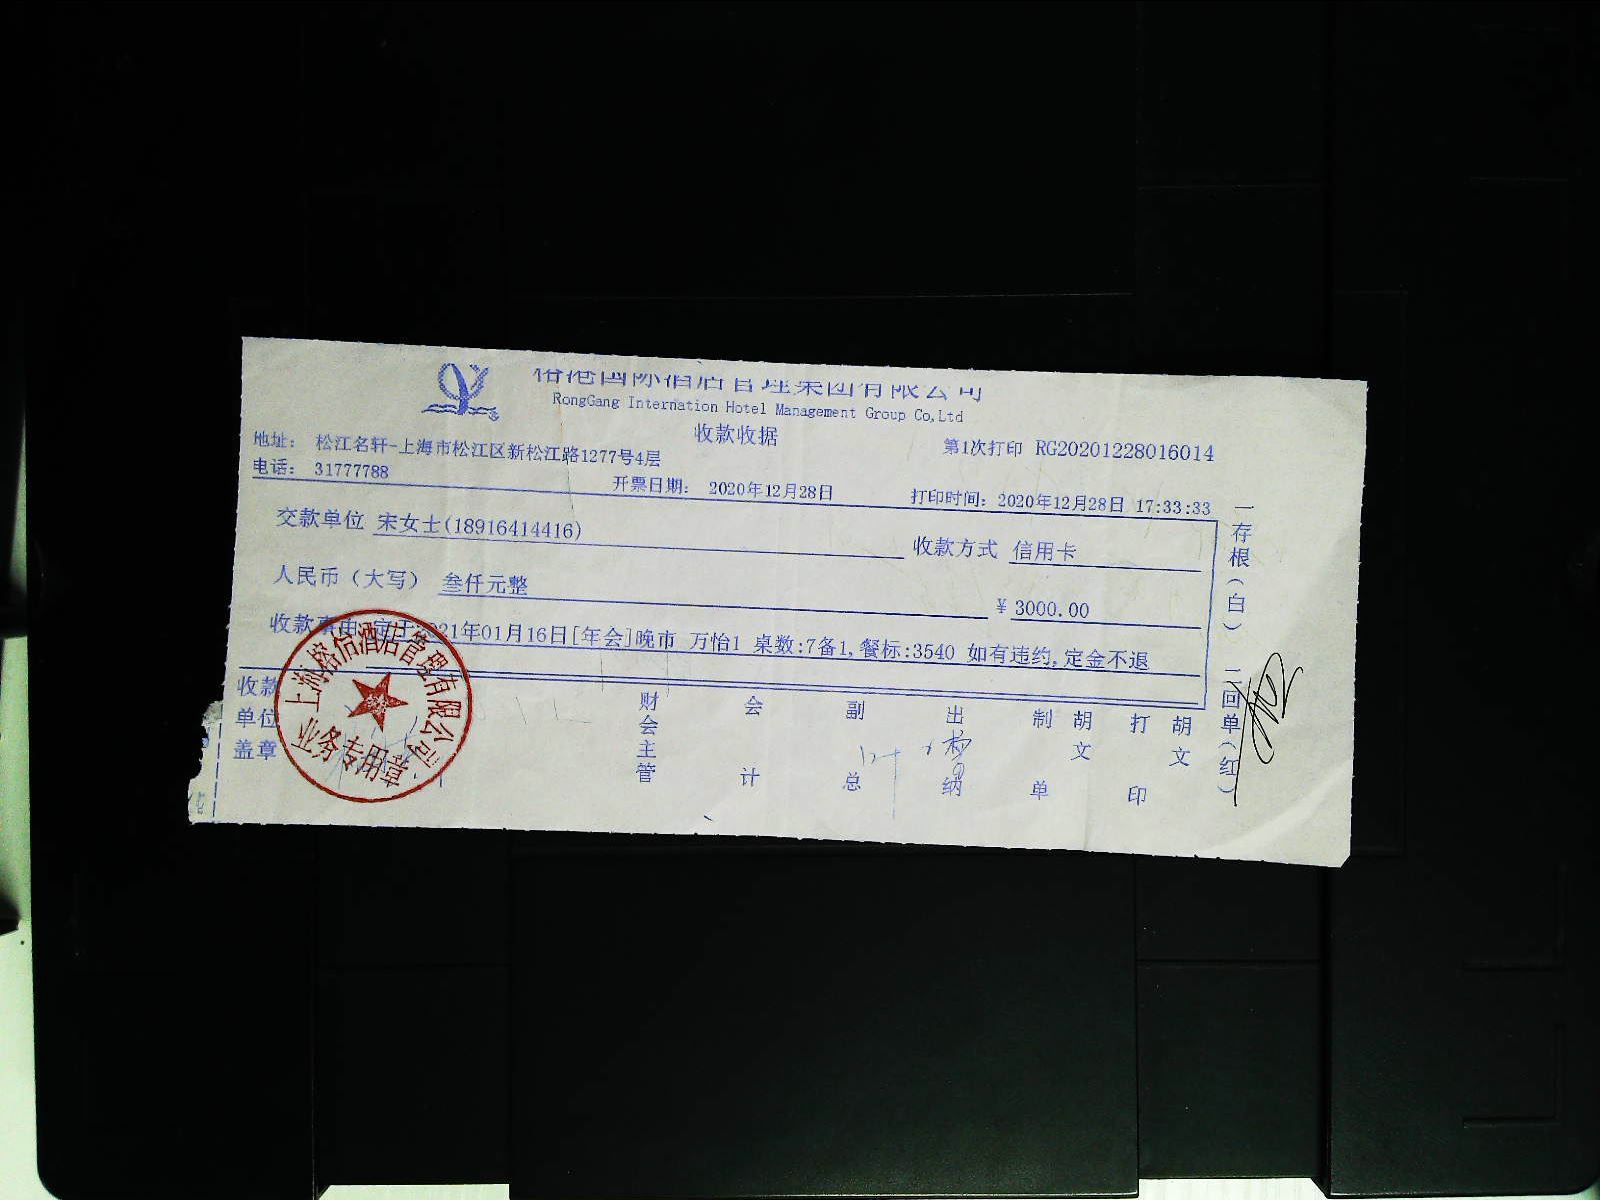 榕港国际酒店管理集团有限公司
RongGang Internation Hotel Management Group Co,Ltd
收款收据
地址： 松江名轩-上海市松江区新松江路1277号4层
第1次打印 RG20201228016014
电话： 31777788
开票日期： 2020年12月28日
打印时间：2020年12月28日 17:33:33
交款单位 宋女士(18916414416)
收款方式 信用卡
人民币（大写） 叁仟元整
¥ 3000.00
收款事由 定于2021年01月16日[年会]晚市 万怡1 桌数:7备1,餐标:3540 如有违约,定金不退
收款单位盖章
财会主管
会计
副总
出纳
制单
胡文
打印
胡文
一存根（白） 二回单（红）
业务专用章